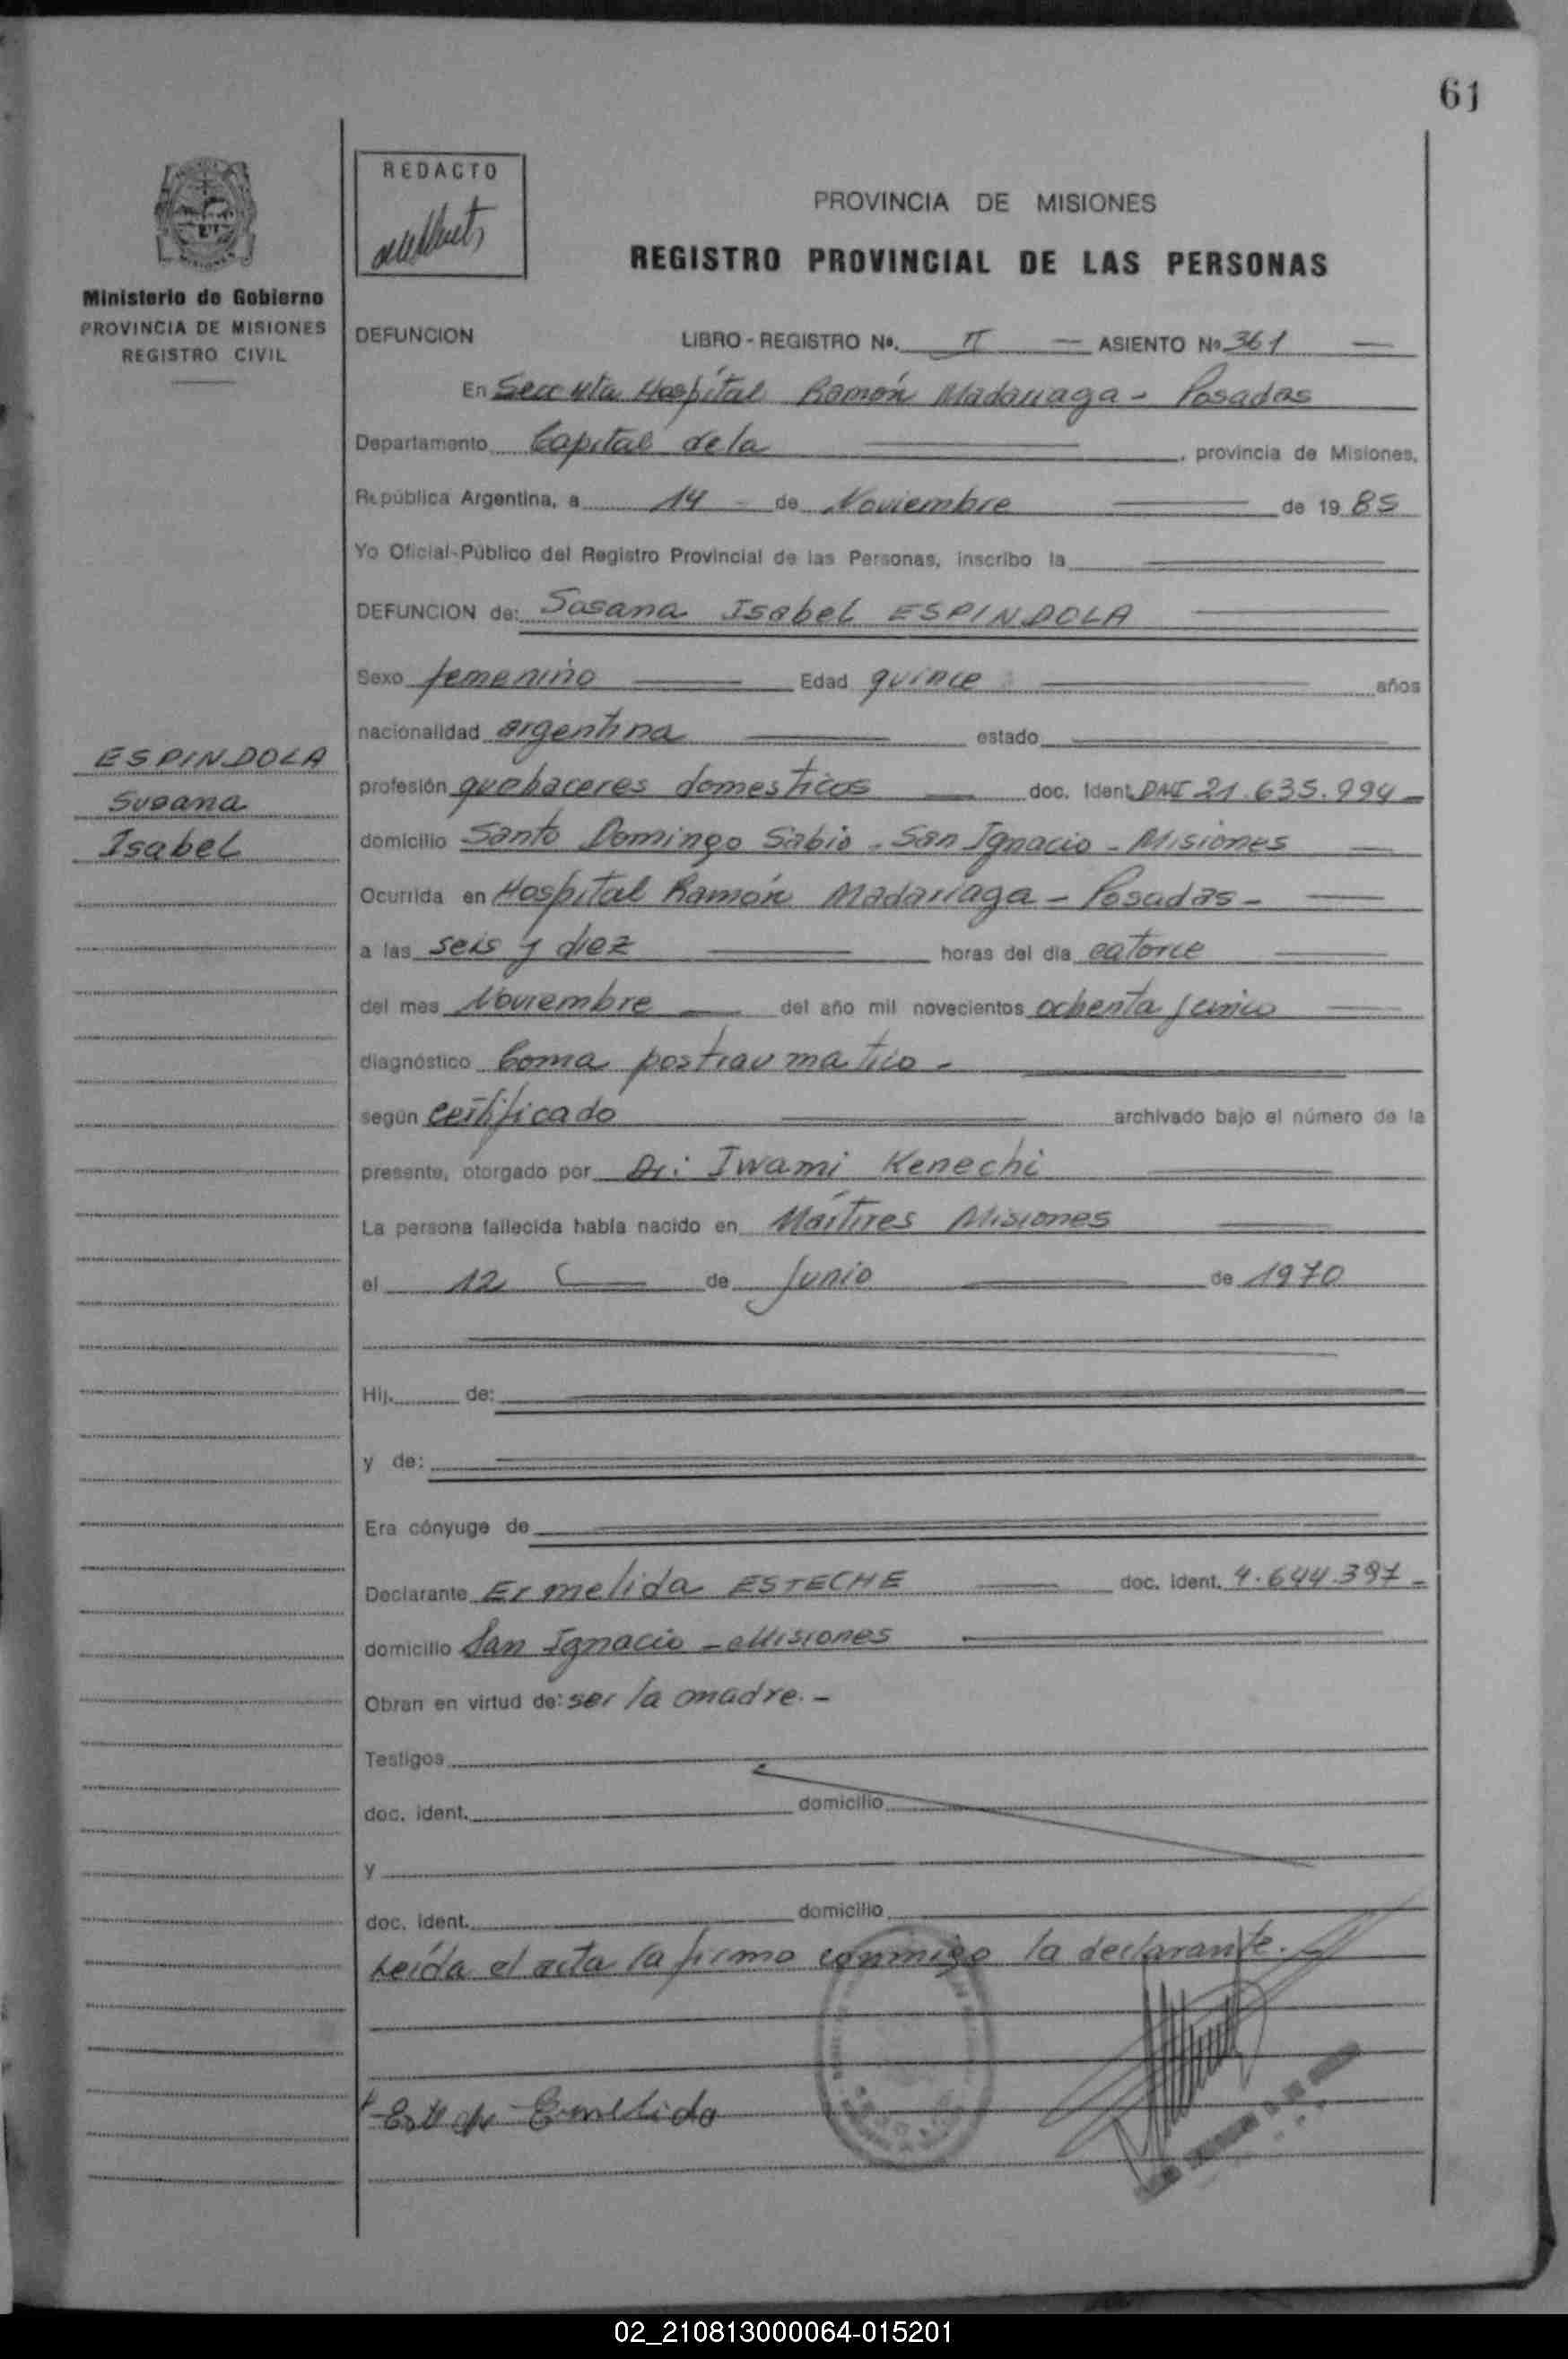 61
REDACTO
PROVINCIA DE MISIONES
REGISTRO PROVINCIAL DE LAS PERSONAS
Ministerio de Gobierno
PROVINCIA DE MISIONES
REGISTRO CIVIL
DEFUNCION LIBRO - REGISTRO Nº. II — ASIENTO Nº 361 —
En Secc 4ta Hospital Ramón Madariaga - Posadas
Departamento Capital de la , provincia de Misiones,
República Argentina, a 14 - de Noviembre de 19 85
Yo Oficial-Público del Registro Provincial de las Personas, inscribo la
DEFUNCION de: Susana Isabel ESPINDOLA
Sexo femenino Edad quince años
nacionalidad argentina estado
ESPINDOLA
Susana
Isabel
profesión quehaceres domesticos doc. Ident. DNI 21.635.994 -
domicilio Santo Domingo Sabio - San Ignacio - Misiones
Ocurrida en Hospital Ramón Madariaga - Posadas -
a las seis y diez horas del dia catorce
del mes Noviembre del año mil novecientos ochenta y cinco
diagnóstico Coma postraumatico -
según certificado archivado bajo el número de la
presente, otorgado por Dr: Iwami Kenechi
La persona fallecida había nacido en Mártires Misiones
el 12 de Junio de 1970
Hij. de:
y de:
Era cónyuge de
Declarante Ermelida ESTECHE doc. ident. 4.644.397 -
domicilio San Ignacio - Misiones
Obran en virtud de: ser la madre. -
Testigos
doc. ident. domicilio
y
doc. ident. domicilio
Leída el acta la firmo conmigo la declarante.
Ermelida
02_210813000064-015201